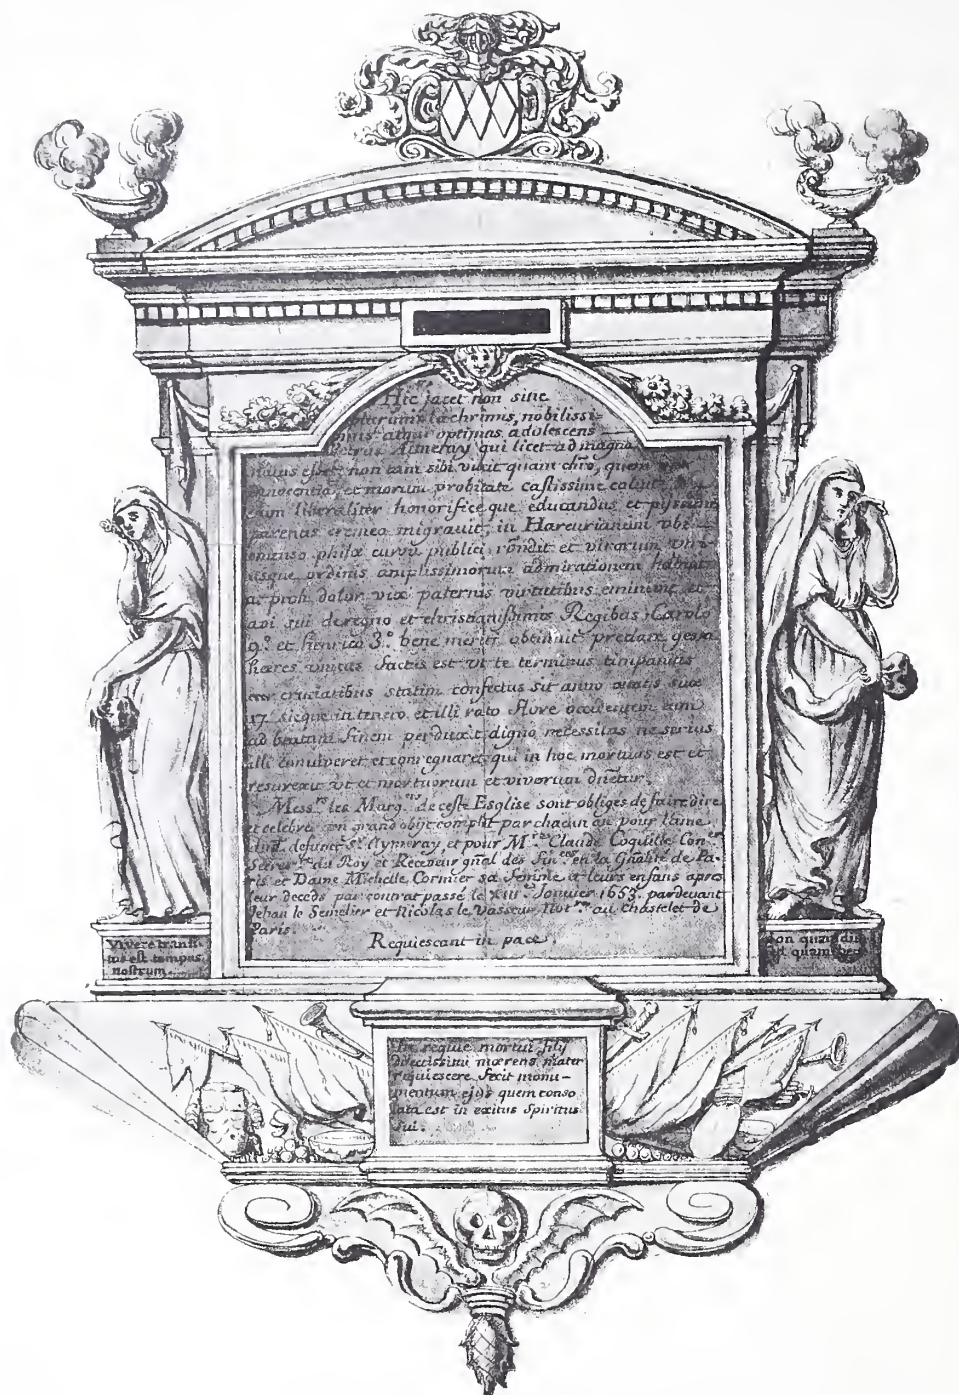 Hic jacet non sine
plurimis lachrimis, nobilissi-
mus atqui optimas adolescens
Petrus Aimeray qui licet ad magna
natus esset non tam sibi vixit quam chro, quem
innocentia, et morum probitate castissime coluit
eum liberaliter honorifice que educandus et pyssime
parenas eremea migravit, in Harcurianum vbi
emenso philæ cursu publicé rondit et virorum vtri-
usque ordinis amplissimorum admirationem habuit
at proh dolor vix paternis virtutibus eminime et
avi sui de regno et christianissimis Regibus Carolo
9.º et henrico 3.º bene meriti obtinuit preclare gesta
hæres vnicus factis est vt te terminus timpanitis
cruciatibus statim confectus sit anno ætatis suæ
17. sicque in tenero et illi rato flore occidentem eum
ad beatum finem perduxit digna necessitas ne serius
illi convivere et conregnaret qui in hoc mortuus est et
resurexit vt et mortuorum et vivorum dnetur.
Mess.rs les Marg.ers de ceste Esglise sont obliges de faire dire
et celebre un grand obijt complet par chacun an pour lame
dud. defunct Sr. Aymeray, et pour M.re Claude Coquille Con.er
Secret.re du Roy et Receveur gñal des fin.ces en la Gñalité de Pa-
ris et Dame Michelle Cormier sa femme et leurs enfans apres
leur deceds par contrat passé le xiii.e Janvier 1653. pardevant
Jehan le Semelier et Nicolas le Vasseur Not.res au Chastelet de
Paris
Requiescant in pace.
Vivere transi-
tus est tempus
nostrum.
Non quam diu
sed quam bene
In requie mortui filij
dilectissimi mœrens mater
requiescere fecit monu-
mentum ejus quem conso
lata est in exitus Spiritus
sui.